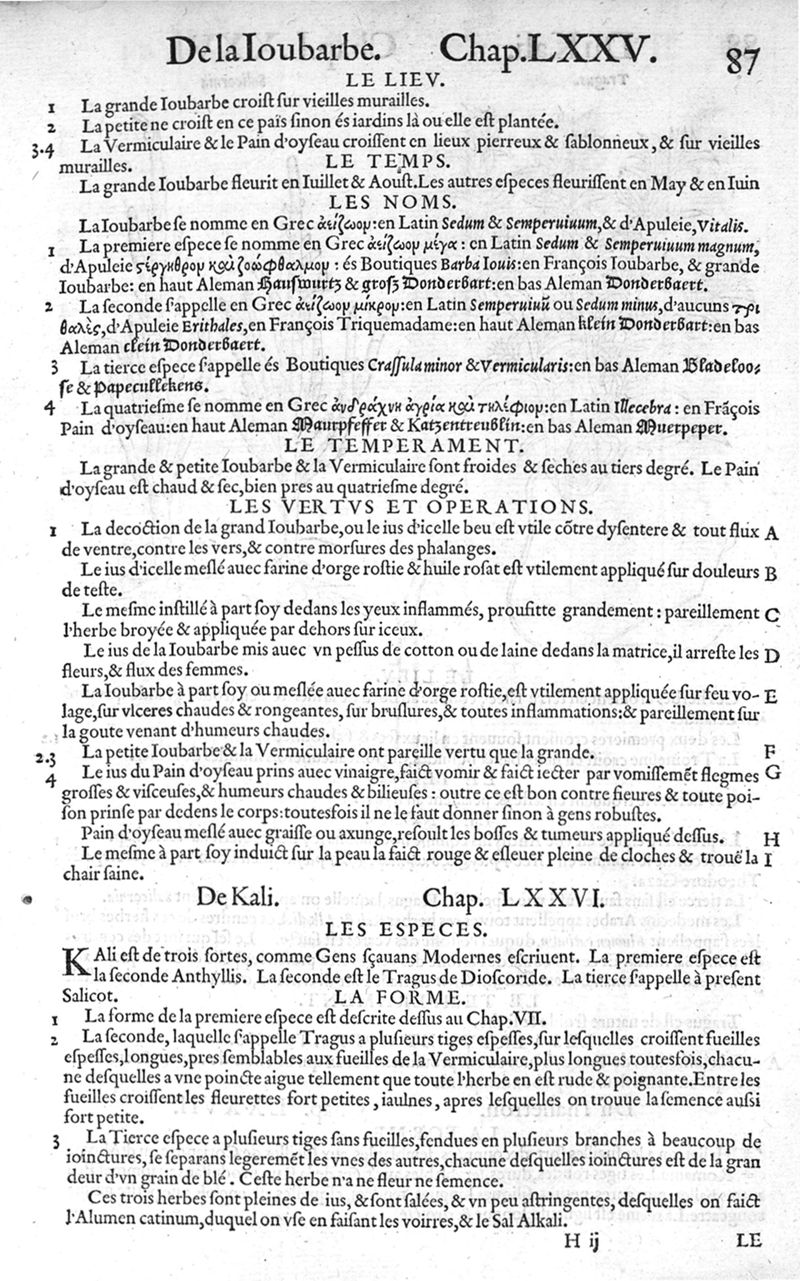 De la Ioubarbe. Chap. LXXV. 87
LE LIEV.
1 La grande Ioubarbe croiſt ſur vieilles murailles.
2 La petite ne croiſt en ce païs ſinon és iardins là ou elle eſt plantée.
3.4 La Vermiculaire & le Pain d'oyſeau croiſſent en lieux pierreux & ſablonneux, & ſur vieilles
murailles. LE TEMPS.
La grande Ioubarbe fleurit en Iuillet & Aouſt. Les autres eſpeces fleuriſſent en May & en Iuin
LES NOMS.
La Ioubarbe ſe nomme en Grec ἀείζωομ: en Latin Sedum & Semperuiuum, & d'Apuleie, Vitalis.
1 La premiere eſpece ſe nomme en Grec ἀείζωομ μέγα: en Latin Sedum & Semperuiuum magnum,
d'Apuleie ϛέργηθρομ καὶ ζοώφθαλμομ: és Boutiques Barba Iouis: en François Ioubarbe, & grande
Ioubarbe: en haut Aleman Hauſwurtz & groſz Donderbart: en bas Aleman Donderbaert.
2 La ſeconde ſ'appelle en Grec ἀείζωομ μίκρομ: en Latin Semperuiuũ ou Sedum minus, d'aucuns τρι
θαλὲς, d'Apuleie Erithales, en François Triquemadame: en haut Aleman klein Donderbart: en bas
Aleman clein Donderbaert.
3 La tierce eſpece ſ'appelle és Boutiques Craſſula minor & Vermicularis: en bas Aleman Bladeloo-
ſe & Papecullekens.
4 La quatrieſme ſe nomme en Grec ἀνδράχνη ἀγρία καὶ τηλέφιομ: en Latin Illecebra: en Frãçois
Pain d'oyſeau: en haut Aleman Maurpfeffer & Katzentreublin: en bas Aleman Muerpeper.
LE TEMPERAMENT.
La grande & petite Ioubarbe & la Vermiculaire ſont froides & ſeches au tiers degré. Le Pain
d'oyſeau eſt chaud & ſec, bien pres au quatrieſme degré.
LES VERTVS ET OPERATIONS.
1 La decoction de la grand Ioubarbe, ou le ius d'icelle beu eſt vtile cõtre dyſentere & tout flux A
de ventre, contre les vers, & contre morſures des phalanges.
Le ius d'icelle meſlé auec farine d'orge roſtie & huile roſat eſt vtilement appliqué ſur douleurs B
de teſte.
Le meſme inſtillé à part ſoy dedans les yeux inflammés, proufitte grandement: pareillement C
l'herbe broyée & appliquée par dehors ſur iceux.
Le ius de la Ioubarbe mis auec vn peſſus de cotton ou de laine dedans la matrice, il arreſte les D
fleurs, & flux des femmes.
La Ioubarbe à part ſoy ou meſlée auec farine d'orge roſtie, eſt vtilement appliquée ſur feu vo- E
lage, ſur vlceres chaudes & rongeantes, ſur bruſlures, & toutes inflammations: & pareillement ſur
la goute venant d'humeurs chaudes.
2.3 La petite Ioubarbe & la Vermiculaire ont pareille vertu que la grande. F
4 Le ius du Pain d'oyſeau prins auec vinaigre, faict vomir & faict iecter par vomiſſemẽt flegmes G
groſſes & viſceuſes, & humeurs chaudes & bilieuſes: outre ce eſt bon contre fieures & toute poi-
ſon prinſe par dedens le corps: toutesfois il ne le faut donner ſinon à gens robuſtes.
Pain d'oyſeau meſlé auec graiſſe ou axunge, reſoult les boſſes & tumeurs appliqué deſſus. H
Le meſme à part ſoy induict ſur la peau la faict rouge & eſleuer pleine de cloches & trouë la I
chair ſaine.
De Kali. Chap. LXXVI.
LES ESPECES.
KAli eſt de trois ſortes, comme Gens ſçauans Modernes eſcriuent. La premiere eſpece eſt
la ſeconde Anthyllis. La ſeconde eſt le Tragus de Dioſcoride. La tierce ſ'appelle à preſent
Salicot. LA FORME.
1 La forme de la premiere eſpece eſt deſcrite deſſus au Chap. VII.
2 La ſeconde, laquelle ſ'appelle Tragus a pluſieurs tiges eſpeſſes, ſur leſquelles croiſſent fueilles
eſpeſſes, longues, pres ſemblables aux fueilles de la Vermiculaire, plus longues toutesfois, chacu-
ne deſquelles a vne poincte aigue tellement que toute l'herbe en eſt rude & poignante. Entre les
fueilles croiſſent les fleurettes fort petites, iaulnes, apres leſquelles on trouue la ſemence auſſi
fort petite.
3 La Tierce eſpece a pluſieurs tiges ſans fueilles, fendues en pluſieurs branches à beaucoup de
ioinctures, ſe ſeparans legeremẽt les vnes des autres, chacune deſquelles ioinctures eſt de la gran
deur d'vn grain de blé. Ceſte herbe n'a ne fleur ne ſemence.
Ces trois herbes ſont pleines de ius, & ſont ſalées, & vn peu aſtringentes, deſquelles on faict
l'Alumen catinum, duquel on vſe en faiſant les voirres, & le Sal Alkali.
H ij LE